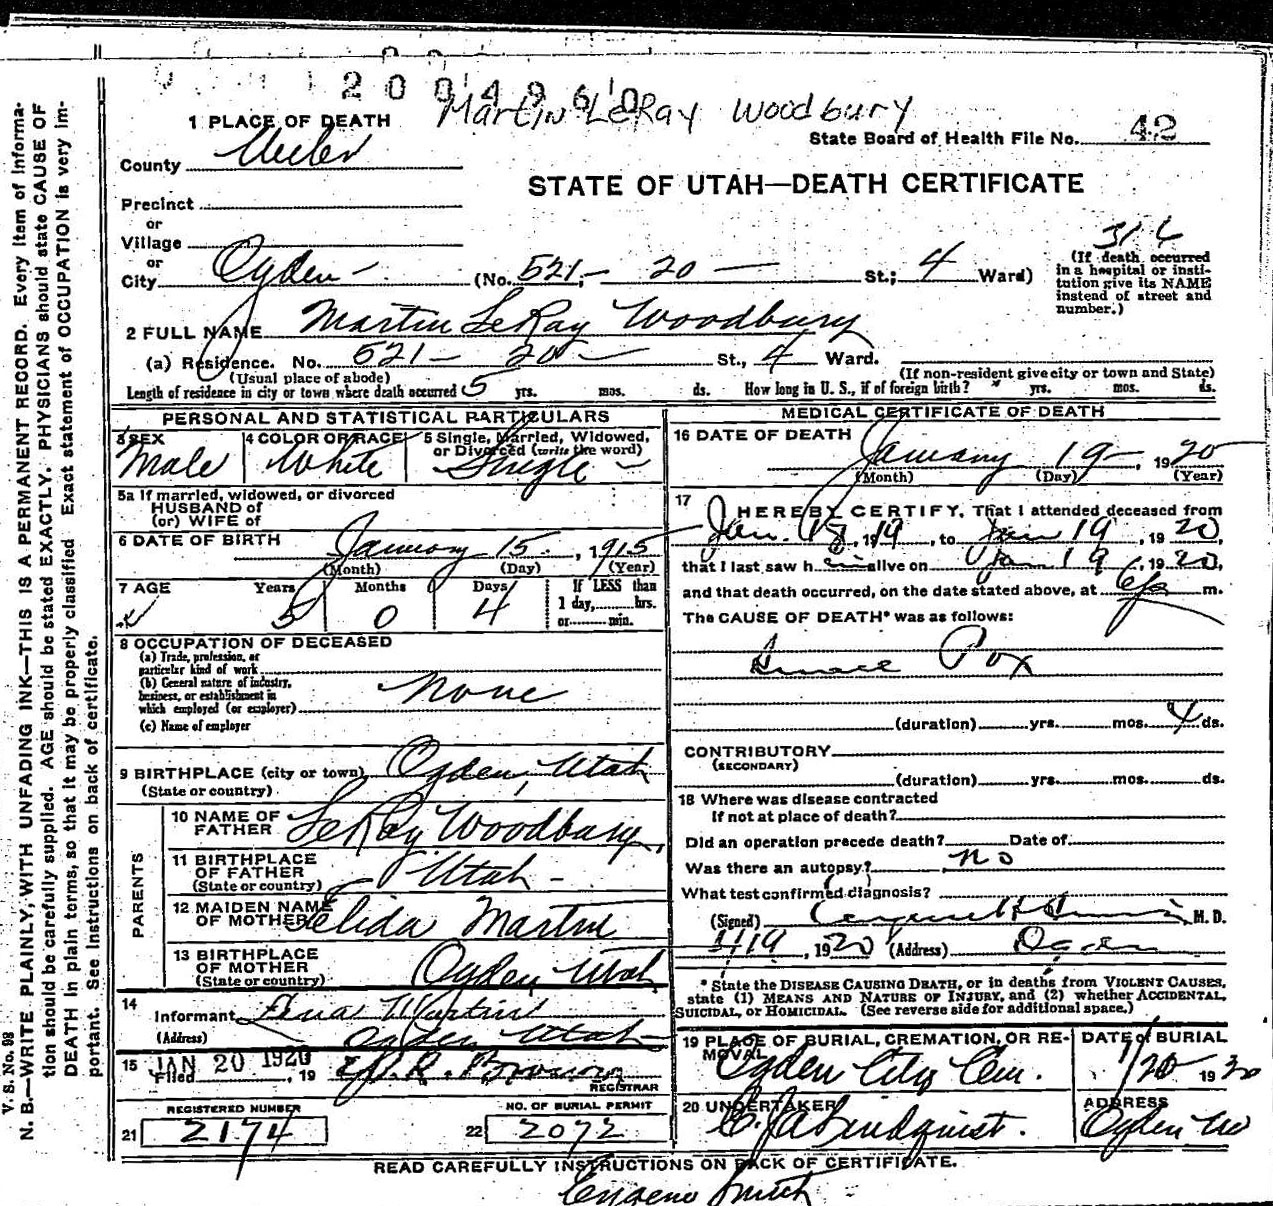 2004960
Martin LeRay Woodbury
1 PLACE OF DEATH
State Board of Health File No. 42
County Weber
STATE OF UTAH—DEATH CERTIFICATE
Precinct
or
Village
or
314
City Ogden - (No. 521 - 20 — St.; 4 Ward)
(If death occurred in a hospital or institution give its NAME instead of street and number.)
2 FULL NAME Martin LeRay Woodbury
(a) Residence. No. 521 - 20 - St., 4 Ward.
(Usual place of abode) (If non-resident give city or town and State)
Length of residence in city or town where death occurred 5 yrs. mos. ds. How long in U. S., if of foreign birth? yrs. mos. ds.
PERSONAL AND STATISTICAL PARTICULARS
3 SEX
Male
4 COLOR OR RACE
White
5 Single, Married, Widowed, or Divorced (write the word)
Single -
5a If married, widowed, or divorced
HUSBAND of
(or) WIFE of
6 DATE OF BIRTH January 15 , 1915
(Month) (Day) (Year)
7 AGE Years Months Days If LESS than 1 day,......hrs. or......min.
5 0 4
8 OCCUPATION OF DECEASED
(a) Trade, profession, or
particular kind of work
(b) General nature of industry,
business, or establishment in
which employed (or employer)
None
(c) Name of employer
9 BIRTHPLACE (city or town) Ogden, Utah
(State or country)
PARENTS
10 NAME OF FATHER LeRay Woodbury,
11 BIRTHPLACE OF FATHER Utah -
(State or country)
12 MAIDEN NAME OF MOTHER Elida Martin
13 BIRTHPLACE OF MOTHER Ogden Utah
(State or country)
14
Informant Martin
(Address) Ogden Utah
15 Filed JAN 20 1920 , 19
REGISTRAR
REGISTERED NUMBER
21 2174
NO. OF BURIAL PERMIT
22 2072
MEDICAL CERTIFICATE OF DEATH
16 DATE OF DEATH
January 19 - 1920
(Month) (Day) (Year)
17 I HEREBY CERTIFY, That I attended deceased from
Jan. 18, 1919, to Jan 19, 1920,
that I last saw h im alive on Jan 19, 1920,
and that death occurred, on the date stated above, at 6 m.
The CAUSE OF DEATH* was as follows:
Small Pox
(duration) yrs. mos. 4 ds.
CONTRIBUTORY
(SECONDARY)
(duration) yrs. mos. ds.
18 Where was disease contracted
If not at place of death?
Did an operation precede death? Date of
Was there an autopsy? no
What test confirmed diagnosis?
(Signed) Eugene H Smith, M. D.
1/19, 1920 (Address) Ogden
* State the DISEASE CAUSING DEATH, or in deaths from VIOLENT CAUSES,
state (1) MEANS AND NATURE OF INJURY, and (2) whether ACCIDENTAL,
SUICIDAL, or HOMICIDAL. (See reverse side for additional space.)
19 PLACE OF BURIAL, CREMATION, OR REMOVAL
Ogden City Cem.
DATE of BURIAL
1/20 1920
20 UNDERTAKER
Lindquist.
ADDRESS
Ogden
READ CAREFULLY INSTRUCTIONS ON BACK OF CERTIFICATE.
Eugene Smith
V. S. No. 98
N. B.—WRITE PLAINLY, WITH UNFADING INK—THIS IS A PERMANENT RECORD. Every item of informa-
tion should be carefully supplied. AGE should be stated EXACTLY. PHYSICIANS should state CAUSE OF
DEATH in plain terms, so that it may be properly classified. Exact statement of OCCUPATION is very im-
portant. See Instructions on back of certificate.